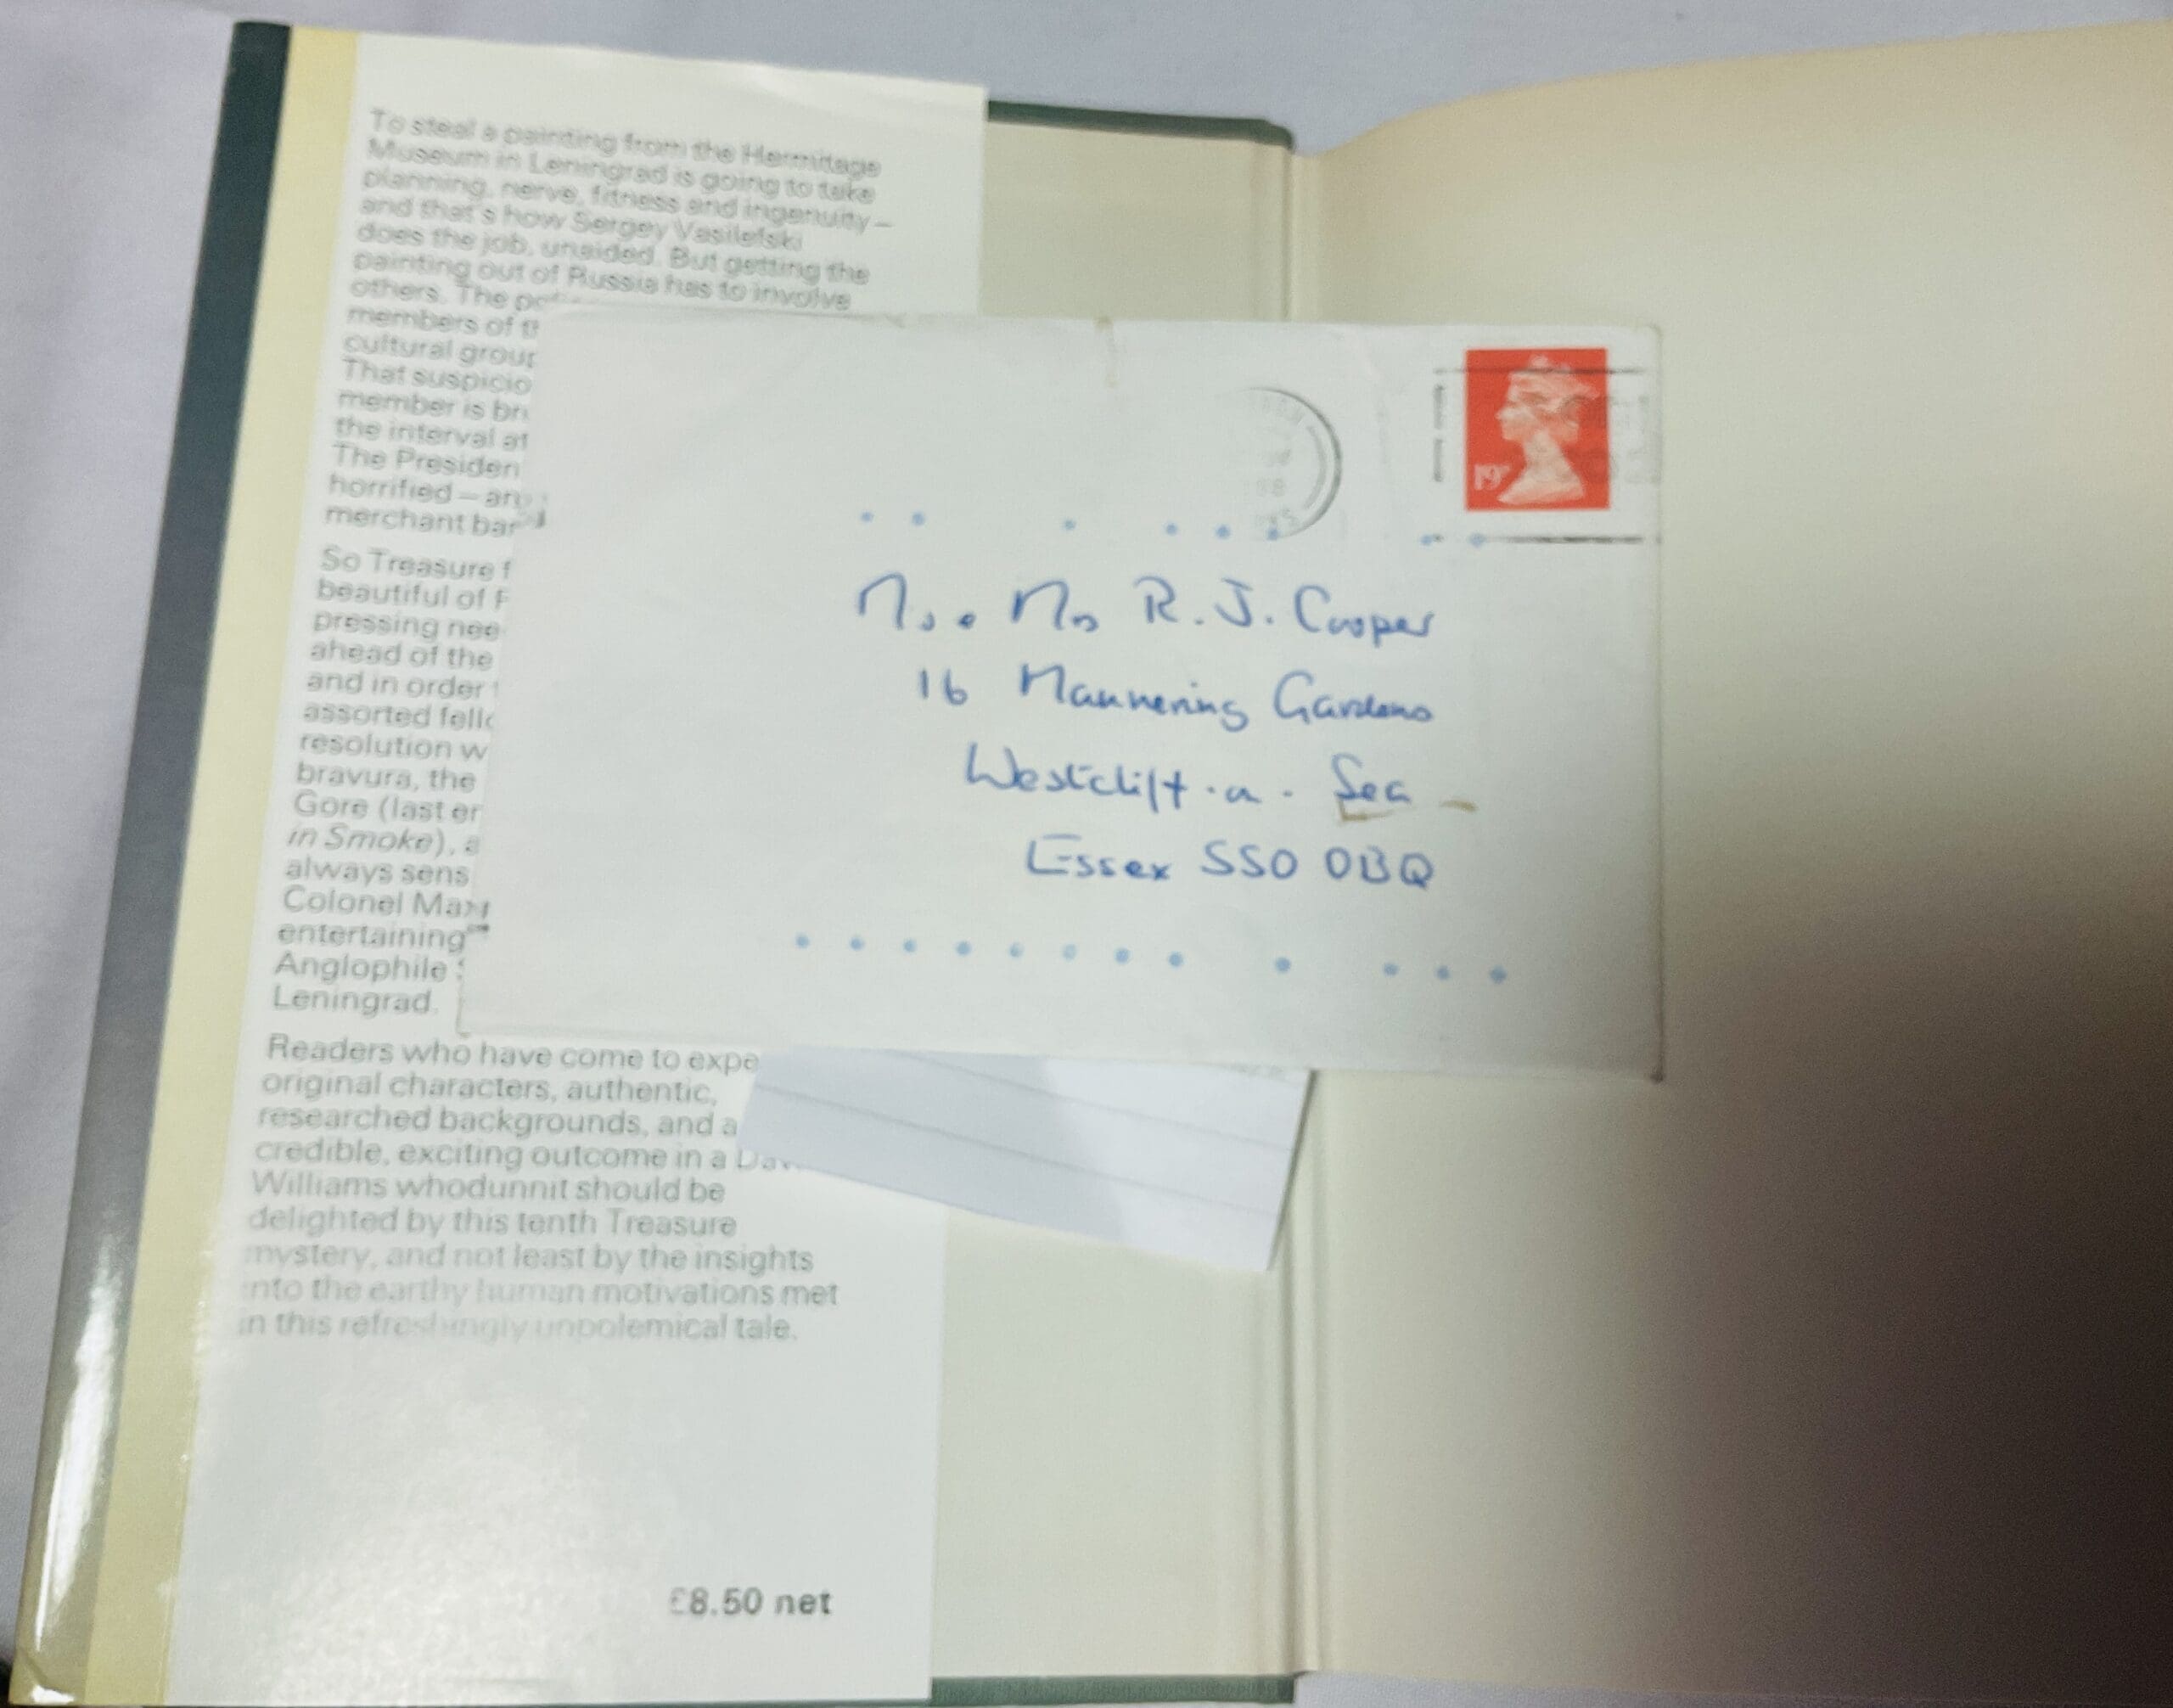 To steal a painting from the Hermitage
Museum in Leningrad is going to take
planning, nerve, fitness and ingenuity –
and that's how Sergey Vasilefski
does the job, unaided. But getting the
painting out of Russia has to involve
others. The
members of
cultural
That
member is
the interval at
The
horrified –
merchant
So Treasure
beautiful of
pressing
ahead of the
and in order
assorted
resolution
bravura, the
Gore (last
in Smoke),
always
Colonel
entertaining
Anglophile
Leningrad.
Readers who have come to
original characters, authentic,
researched backgrounds, and a
credible, exciting outcome in a
Williams whodunnit should be
delighted by this tenth Treasure
mystery, and not least by the insights
into the earthy human motivations met
in this refreshingly unpolemical tale.
£8.50 net
19P
R. J. Cooper
16 Mannering Gardens
Westcliff · a · Sea
Essex SS0 0BQ